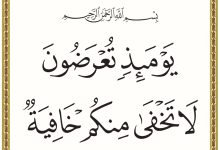 بِسْمِ اللَّهِ الرَّحْمَٰنِ الرَّحِيمِ
يَوْمَئِذٍ تُعْرَضُونَ
لَا تَخْفَىٰ مِنكُمْ خَافِيَةٌ